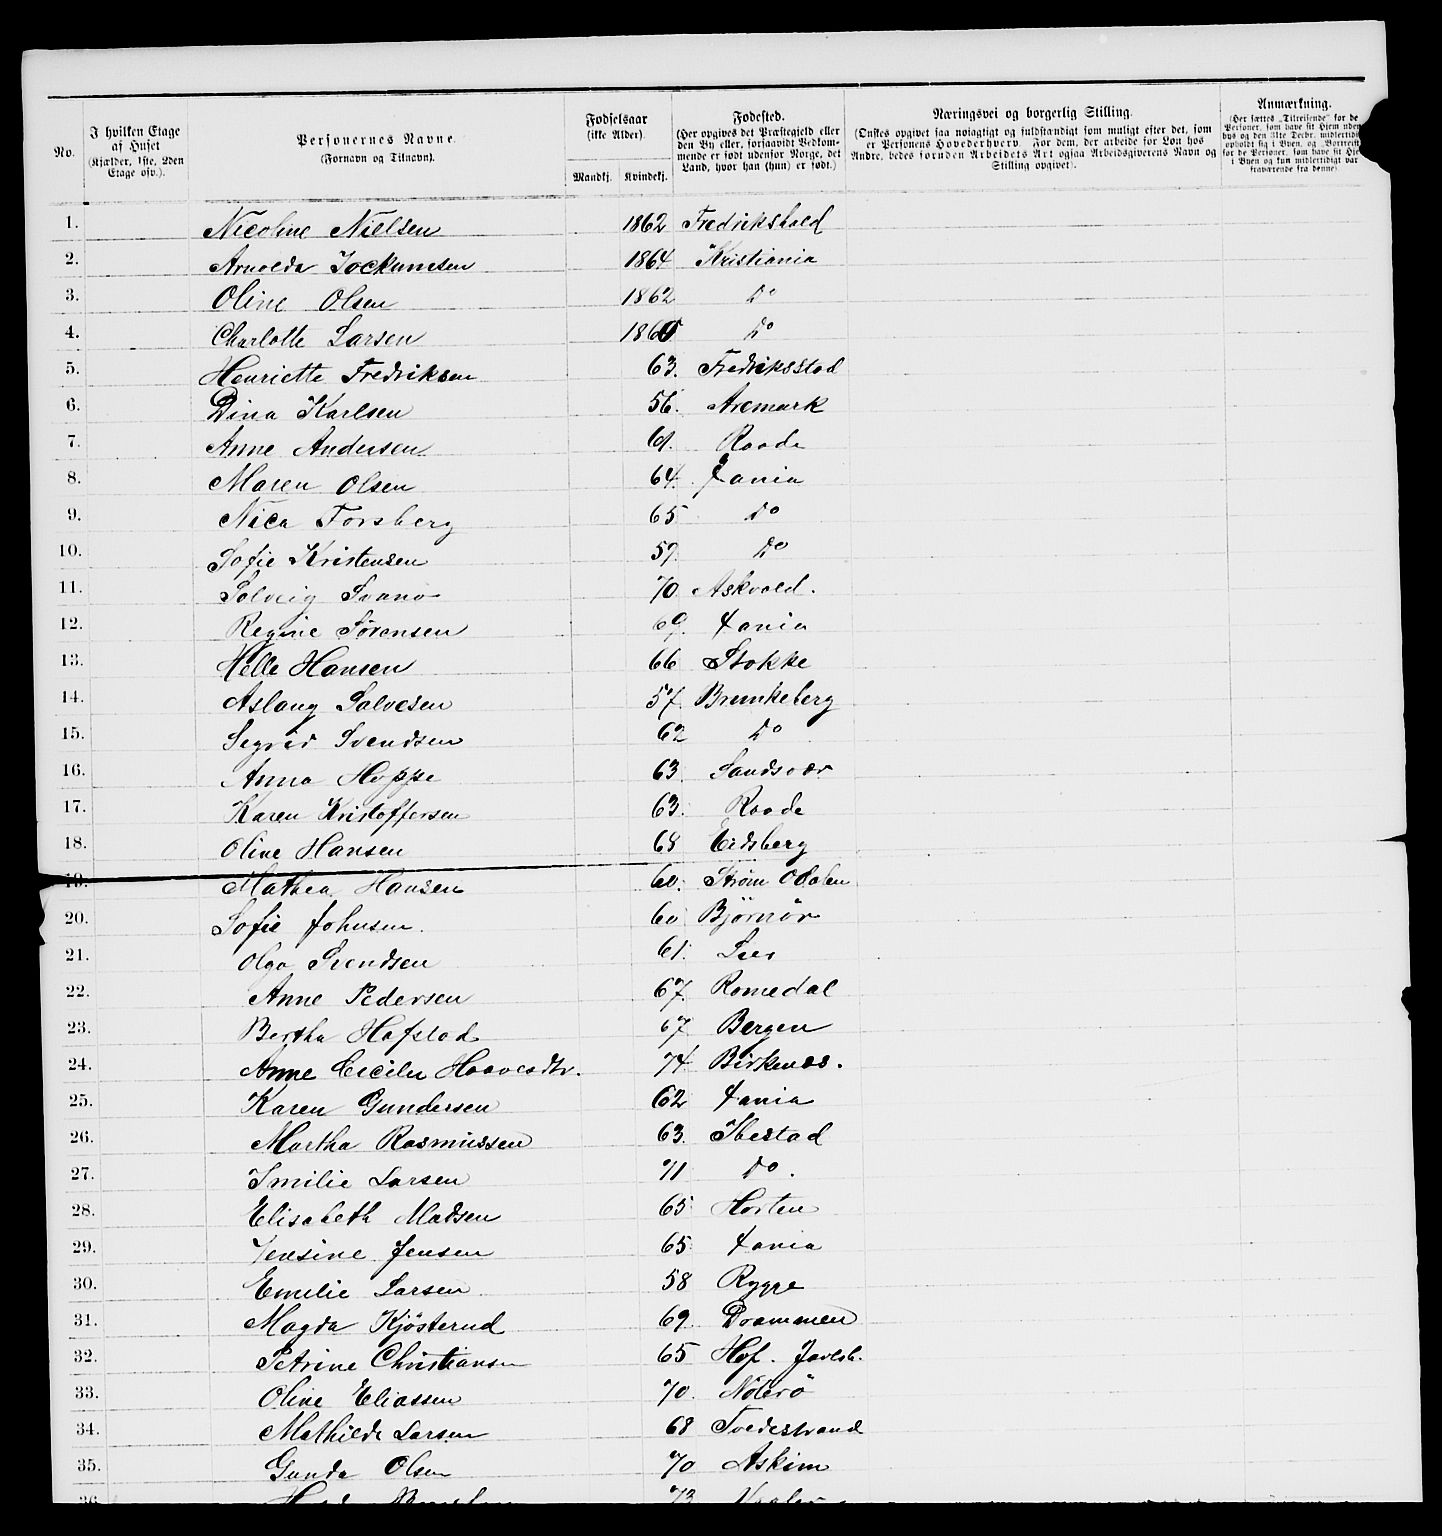 No.
I hvilken Etage af Huset (Kjælder, 1ste, 2den Etage osv.).
Personernes Navne. (Fornavn og Tilnavn).
Fødselsaar (ikke Alder). Mandkj. Kvindekj.
Fødested. (Her opgives det Præstegjeld eller den By eller, forsaavidt Vedkommende er født udenfor Norge, det Land, hvor han (hun) er født.)
Næringsvei og borgerlig Stilling. (Ønskes opgivet saa nøiagtigt og fuldstændigt som muligt efter det, som er Personens Hovederhverv. For dem, der arbeide for Løn hos Andre, bedes foruden Arbeidets Art ogsaa Arbeidsgiverens Navn og Stilling opgivet).
Anmærkning. (Her sættes „Tilreisende" for de Personer, som have sit Hjem uden bys og den 31te Decbr. midlertidig opholdt sig i Byen, og „Bortreist" for de Personer, som have sit Hjem i Byen og kun midlertidigt var fraværende fra denne)
1. Nicoline Nielsen 1862 Fredrikshald
2. Arnolda Jockumsen 1864 Kristiania
3. Oline Olsen 1862 Do
4. Charlotte Larsen Do
5. Henriette Fredriksen 63. Fredriksstad
6. Dina Karlsen 56. Aremark
7. Anne Andersen 61. Raade
8. Maren Olsen 64. Xania
9. Nica Forsberg 65 Do
10. Sofie Kristensen 59. Do
11. Solveig Svanø 70 Askvold.
12. Regine Sørensen 69. Xania
13. Helle Hansen 66 Stokke
14. Aslaug Salvesen 57. Brunkeberg
15. Segrid Svendsen 62 Do
16. Anna Hoppe 63. Sandsvær
17. Karen Kristoffersen 63. Raade
18. Oline Hansen 68 Eidsberg
19. Mathea Hansen 60. Strøm Odalen
20. Sofie Johnsen. 60 Bjørnør
21. Olga Svendsen 61.
22. Anne Pedersen 67. Romedal
23. Bertha Hafstad 67. Bergen
24. Anne Cecilie Haavesdtr. 74 Birkenæs.
25. Karen Gundersen 62 Xania
26. Martha Rasmussen 63. Ibestad
27. Emilie Larsen 71 Do.
28. Elisabeth Madsen 65. Horten
29. Jensine Jensen 65. Xania
30. Emilie Larsen 58 Rygge
31. Magda Kjøsterud 69. Drammen
32. Petrine Christiansen 65 Hof. Jarlsb.
33. Oline Eliassen 70. Nøterø
34. Mathilde Larsen 68 Tvedestrand
35. Gunda Olsen 70 Askim
36. 73